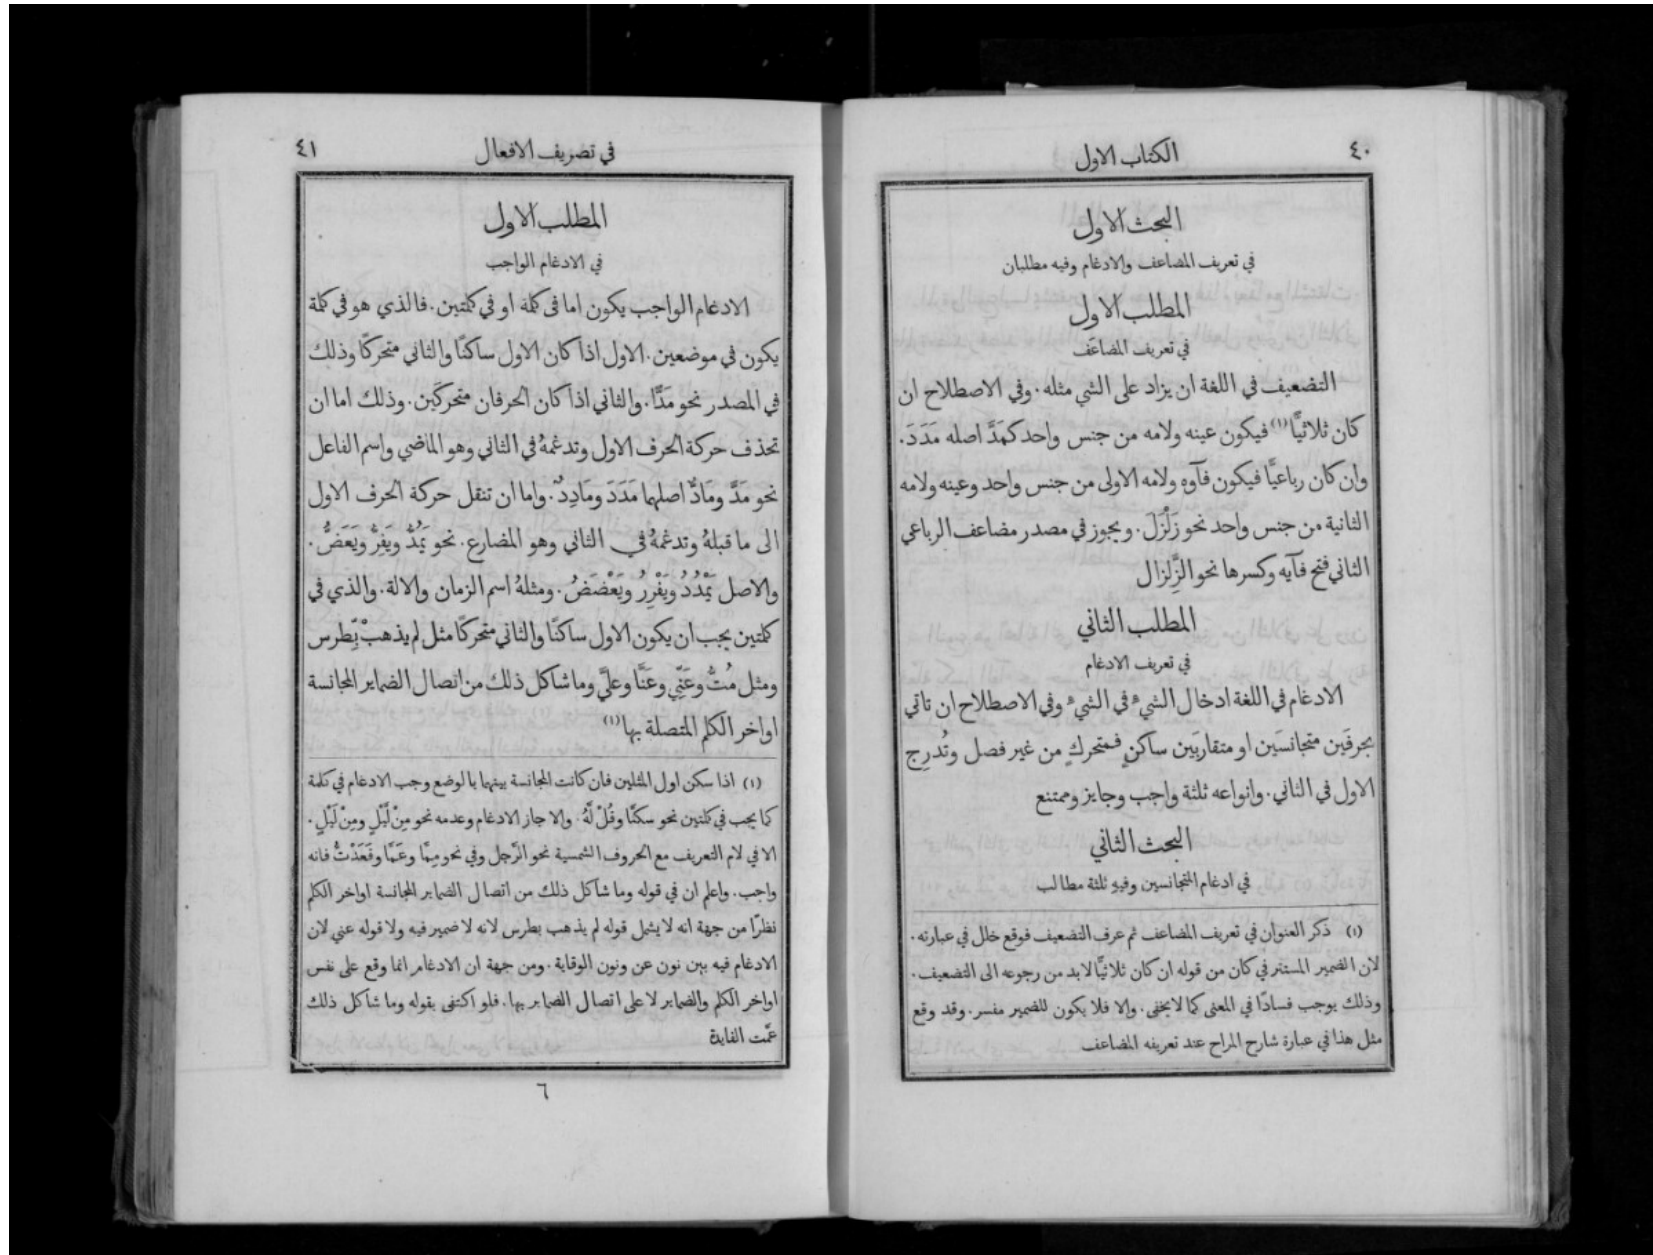 ٤٠
الكتاب الاول
البحث الاول
في تعريف المضاعف والادغام وفيه مطلبان
المطلب الاول
في تعريف المضاعَف
التضعيف في اللغة ان يزاد على الشي مثله. وفي الاصطلاح ان
كان ثلاثيًّا (١) فيكون عينه ولامه من جنس واحد كمَدَّ اصله مَدَدَ.
وان كان رباعيًّا فيكون فآوه ولامه الاولى من جنس واحد وعينه ولامه
الثانية من جنس واحد نحو زَلْزَلَ. ويجوز في مصدر مضاعف الرباعي
الثاني فتح فآيه وكسرها نحو الزَِّلزال
المطلب الثاني
في تعريف الادغام
الادغام في اللغة ادخال الشيء في الشيء وفي الاصطلاح ان تاتي
بحرفَين متجانسَين او متقاربَين ساكنٍ فمتحركٍ من غير فصل وتُدرِج
الاول في الثاني. وانواعه ثلثة واجب وجايز وممتنع
البحث الثاني
في ادغام المتجانسين وفيهِ ثلثة مطالب
(١) ذكر العنوان في تعريف المضاعف ثم عرف التضعيف فوقع خلل في عبارته.
لان الضمير المستتر في كان من قوله ان كان ثلاثيًّا لابد من رجوعه الى التضعيف.
وذلك يوجب فسادًا في المعنى كما لايخفى. والا فلا يكون للضمير مفسر. وقد وقع
مثل هذا في عبارة شارح المراح عند تعريفه المضاعف
في تصريف الافعال
٤١
المطلب الاول
في الادغام الواجب
الادغام الواجب يكون اما في كلمة او في كلمتين. فالذي هو في كلمة
يكون في موضعين. الاول اذا كان الاول ساكنًا والثاني متحركًا وذلك
في المصدر نحو مَدًّا. والثاني اذا كان الحرفان متحركَين. وذلك اما ان
تحذف حركة الحرف الاول وتدغمهُ في الثاني وهو الماضي واسم الفاعل
نحو مَدَّ ومَادٌّ اصلهما مَدَدَ ومَادِدٌ. واما ان تنقل حركة الحرف الاول
الى ما قبلهُ وتدغمهُ في الثاني وهو المضارع. نحو يَمُدُّ ويَفِرُّ ويَعَضُّ.
والاصل يَمْدُدُ ويَفْرِرُ ويَعْضَضُ. ومثلهُ اسم الزمان والالة. والذي في
كلمتين يجب ان يكون الاول ساكنًا والثاني متحركًا مثل لم يذهبْ بِّطرس
ومثل مُتُّ وعَنِّي وعَنَّا وعليَّ وما شاكل ذلك من اتصال الضماير المجانسة
اواخر الكلم المتصلة بها (١)
(١) اذا سكن اول المثلين فان كانت المجانسة بينهما بالوضع وجب الادغام في كلمة
كما يجب في كلمتين نحو سكنَّا وقُلْ لَّهُ. والا جاز الادغام وعدمه نحو مِنْ لَّيْلٍ ومِنْ لَيْلٍ.
الا في لام التعريف مع الحروف الشمسية نحو الرَّجل وفي نحو مِمَّا وعَمَّا وقَعَدْتُّ فانه
واجب. واعلم ان في قوله وما شاكل ذلك من اتصال الضماير المجانسة اواخر الكلم
نظرًا من جهة انه لا يشمل قوله لم يذهب بطرس لانه لا ضمير فيه ولا قوله عني لان
الادغام فيه بين نون عن ونون الوقاية. ومن جهة ان الادغام انما وقع على نفس
اواخر الكلم والضماير لا على اتصال الضماير بها. فلو اكتفى بقوله وما شاكل ذلك
عمَّت الفايدة
٦